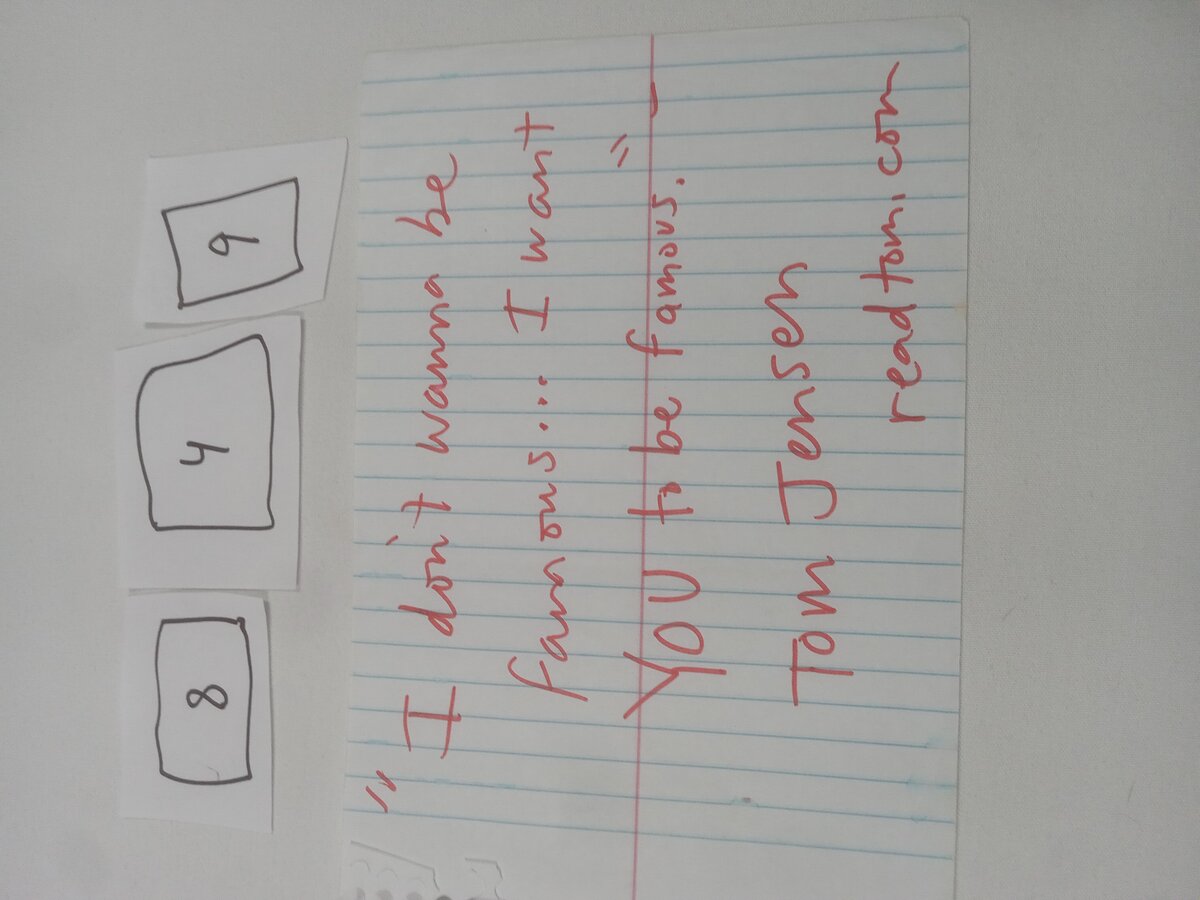 8 4 9
"I don't wanna be
famous... I want
YOU to be famous." -
Tom Jensen
readtom.com